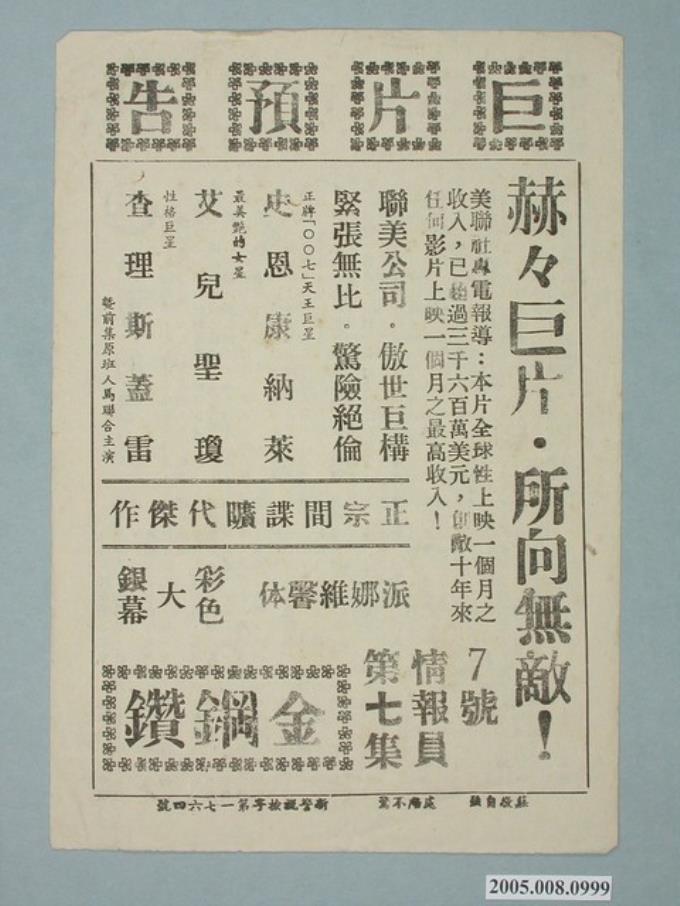 巨片預告
赫々巨片．所向無敵！
美聯社專電報導：本片全球性上映一個月之
收入，已超過三千六百萬美元，創敵十年來
任何影片上映一個月之最高收入！
聯美公司．傲世巨構
緊張無比．驚險絕倫
正牌「〇〇七」天王巨星
史恩康納萊
最美艷的女星
艾兒聖瓊
性格巨星
查理斯蓋雷
暨前集原班人馬聯合主演
正宗間諜曠代傑作
派娜維馨体
彩色
大
銀幕
7號
情報員
第七集
金鋼鑽
新警視檢字第一七六四號
2005.008.0999